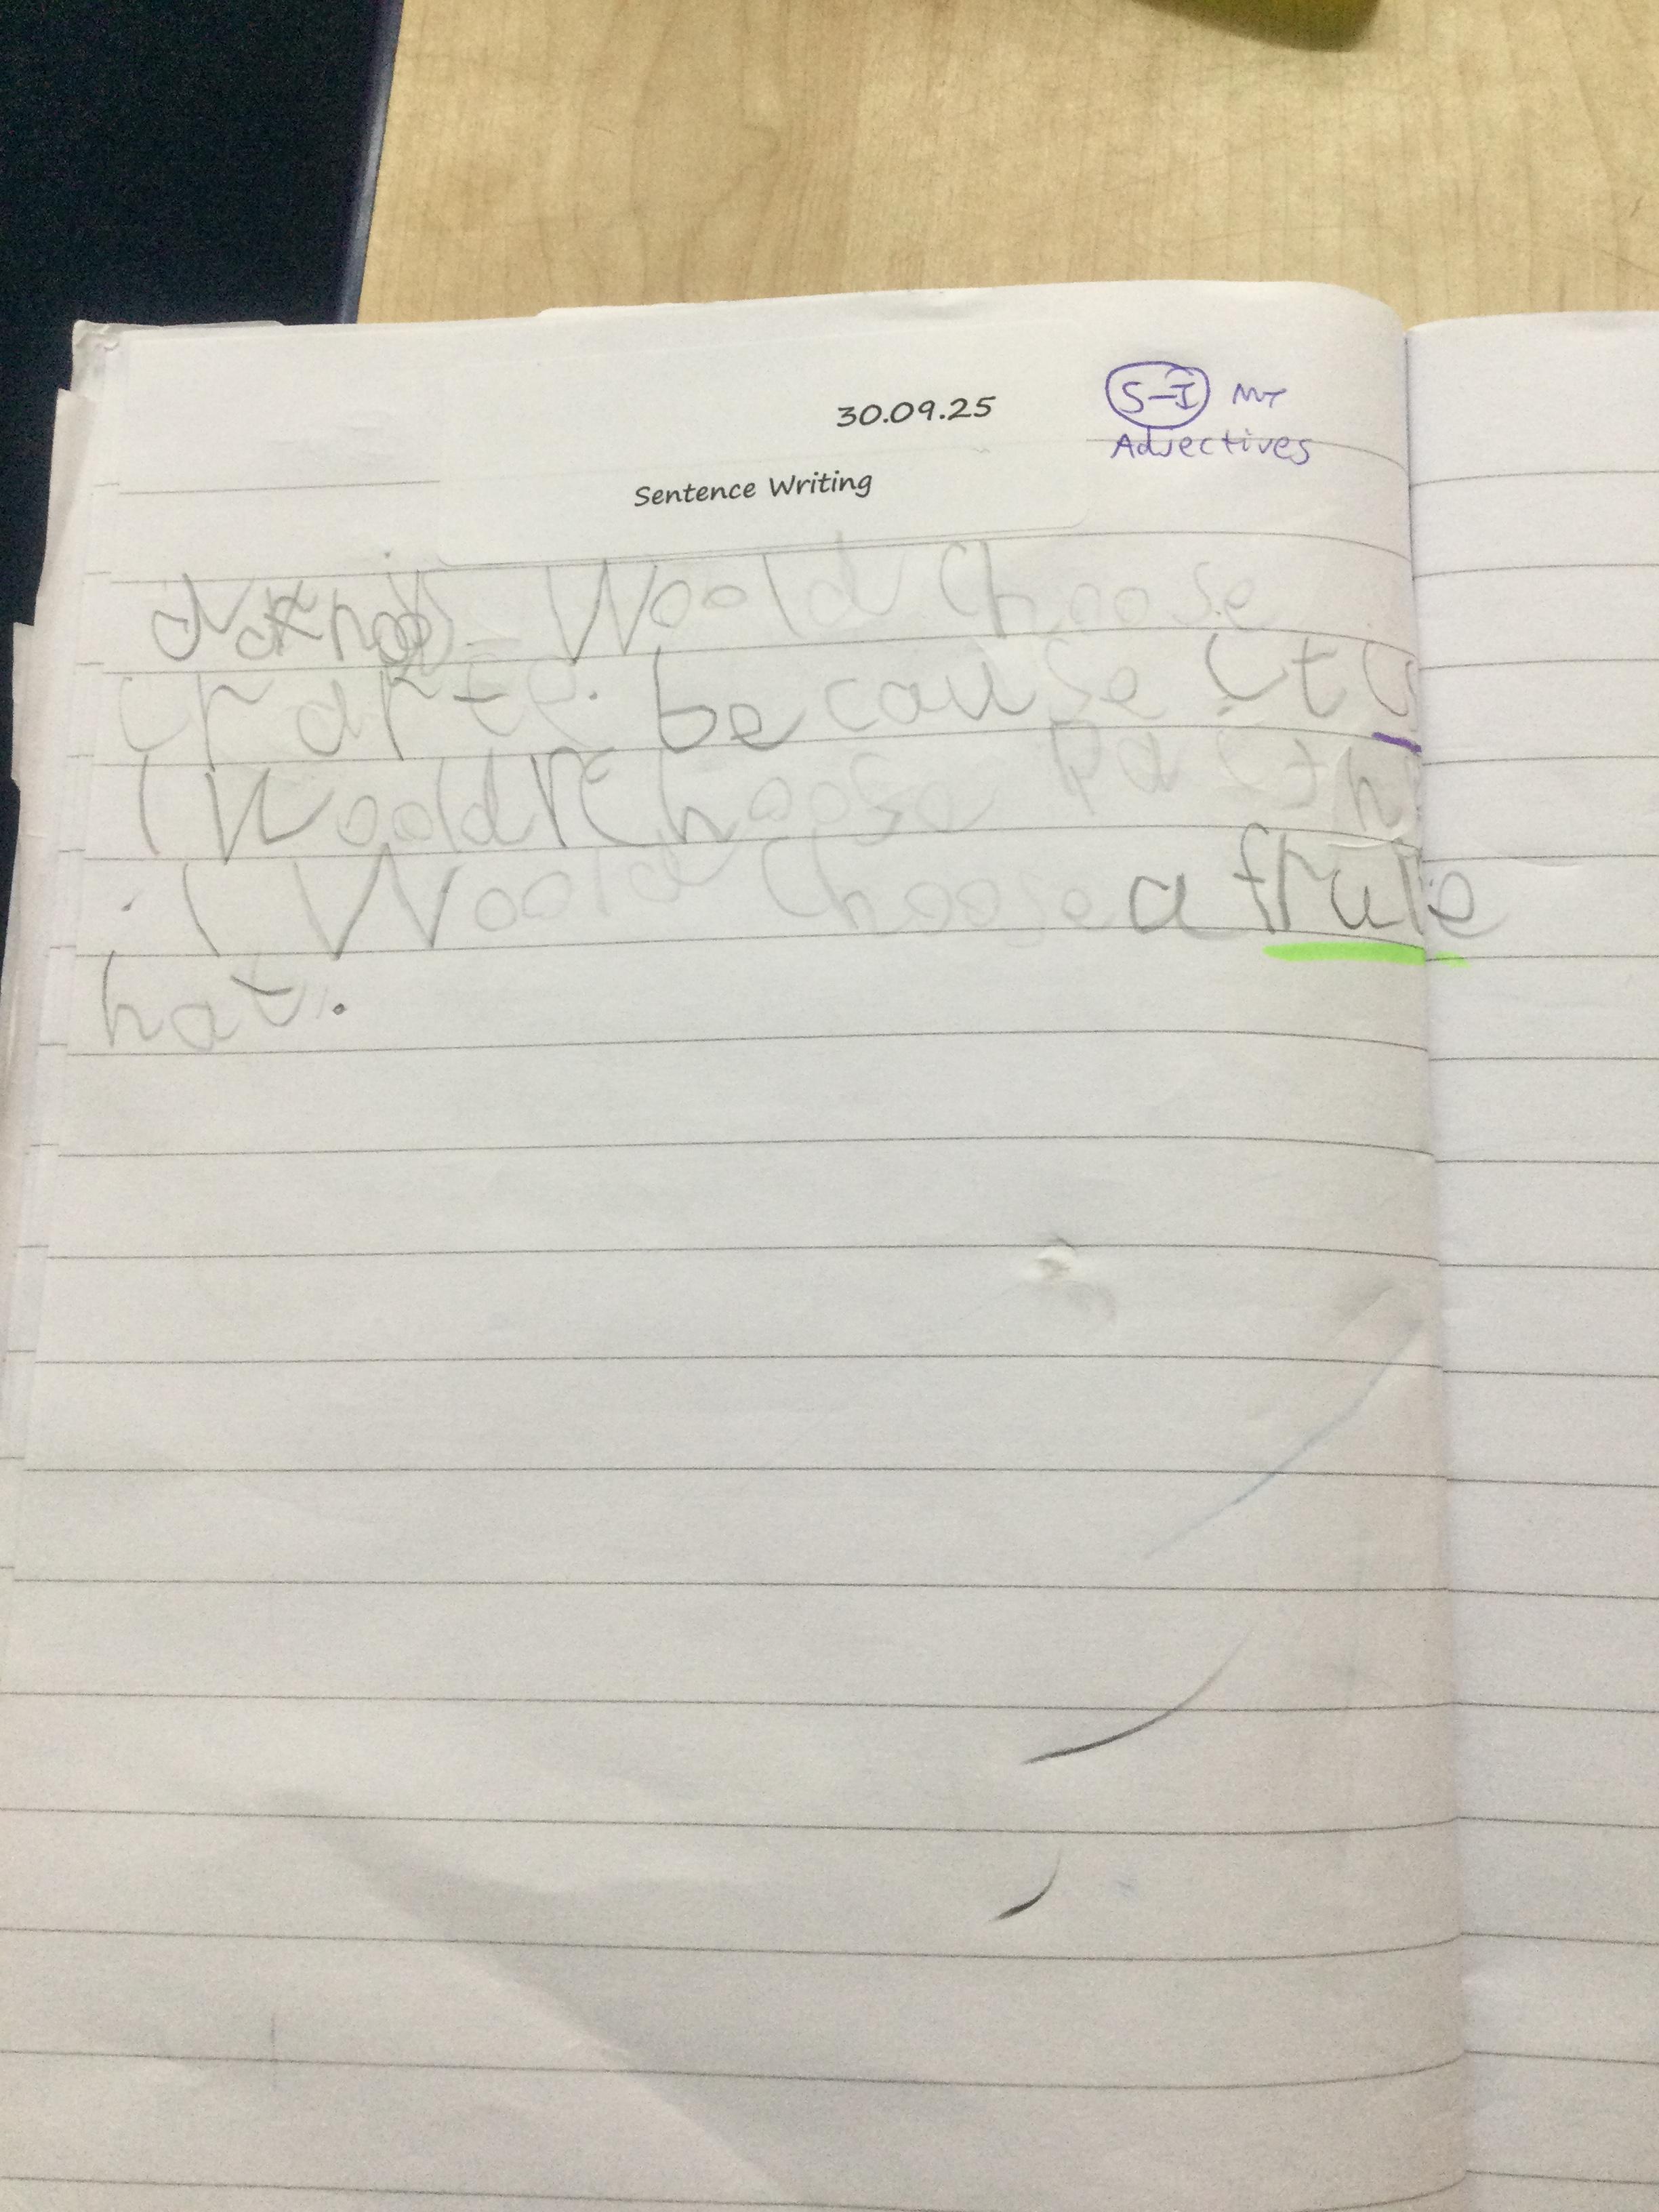 30.09.25
S-I MT
Adjectives
Sentence Writing
Woold choose
because its
I Woold choose
. I Woold choose a frule
hat.